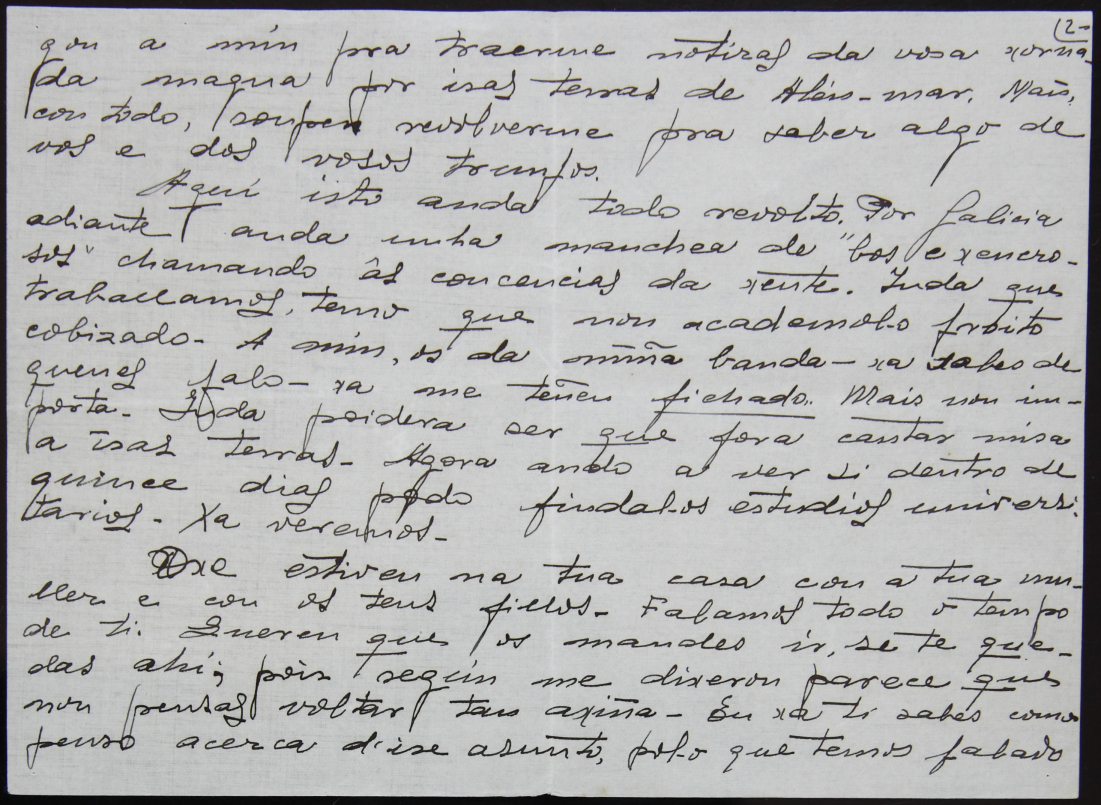 (2-
gou a min pra traerme notizas da vosa xorna-
da magna por isas terras de Alén-mar. Mais,
con todo, souben revolverme pra saber algo de
vos e dos vosos trunfos.
Aquí isto anda todo revolto. Por Galicia
adiante anda unha manchea de "bos e xenero-
sos" chamando âs concencias da xente. Inda que
traballamos, temo que non academol-o froito
cobizado. A min, os da miña banda - xa sabes de
quenes falo - xa me teñen fichado. Mais non im-
porta. Inda poidera ser que fora cantar misa
a isas terras. Agora ando a ver si dentro de
quince dias podo findal-os estudios universi-
tarios. Xa veremos.
Oxe estiven na tua casa con a tua mu-
ller e con os teus fillos. Falamos todo o tempo
de ti. Queren que os mandes ir, se te que-
das ahí; pois según me dixeron parece que
non pensas voltar tan axiña. Eu xa ti sabes como
penso acerca d-ise asunto, pol-o que temos falado